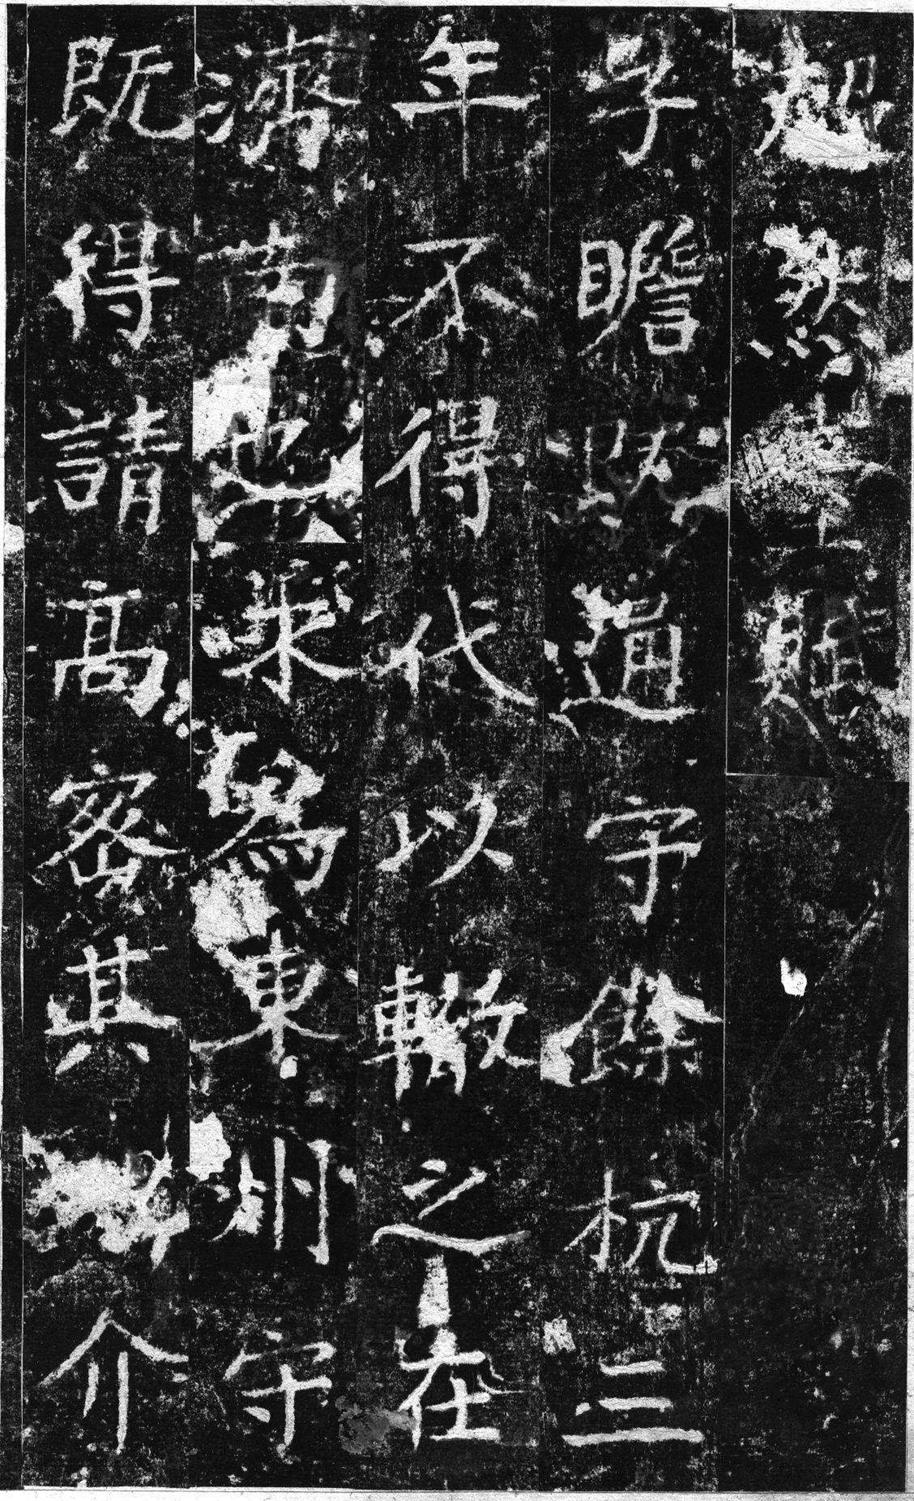 超然臺賦
子瞻既通守餘杭三
年不得代以轍之在
濟南也求爲東州守
既得請高密其地介